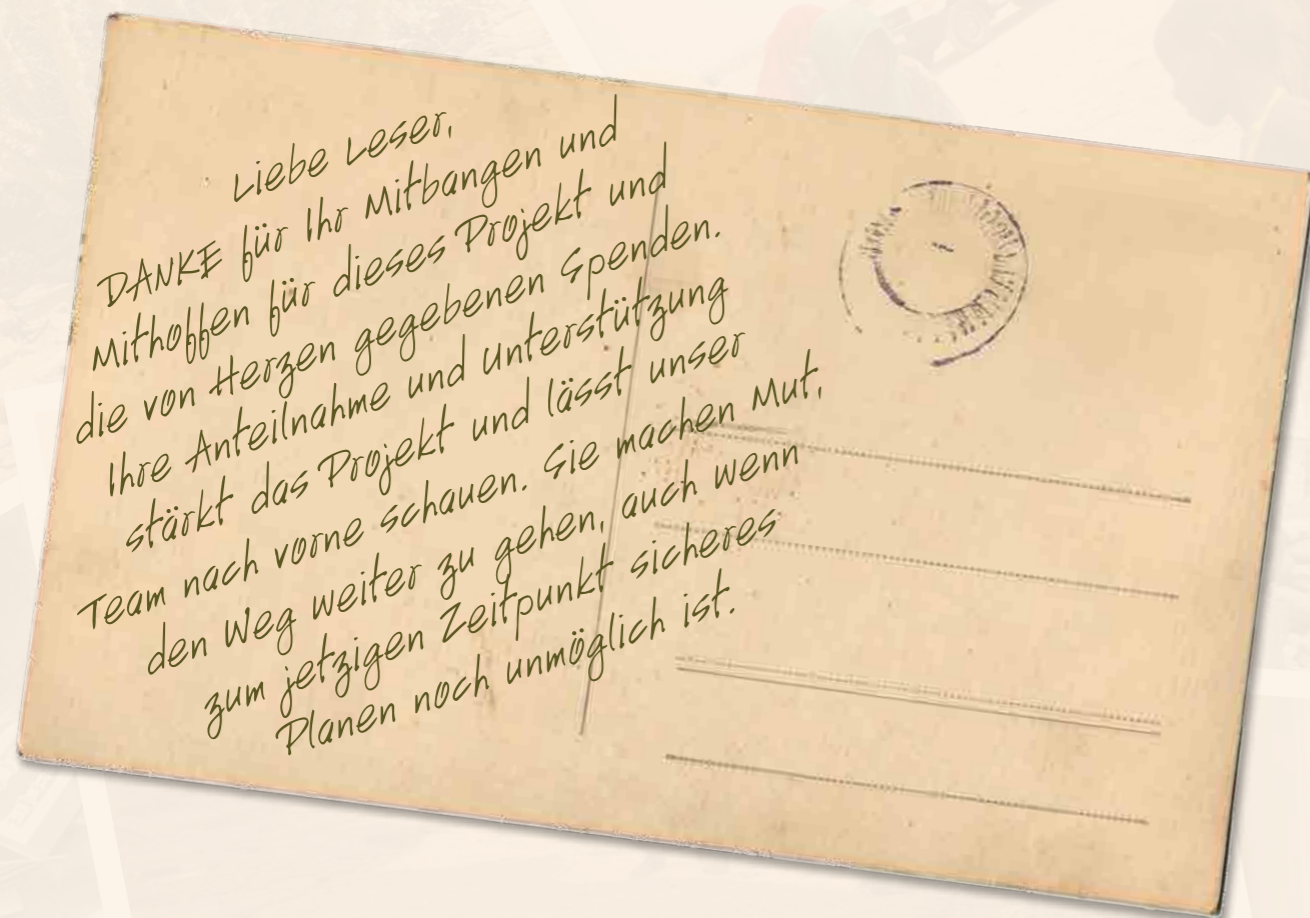 Liebe Leser,
DANKE für Ihr Mitbangen und
Mithoffen für dieses Projekt und
die von Herzen gegebenen Spenden.
Ihre Anteilnahme und Unterstützung
stärkt das Projekt und lässt unser
Team nach vorne schauen. Sie machen Mut,
den Weg weiter zu gehen, auch wenn
zum jetzigen Zeitpunkt sicheres
Planen noch unmöglich ist.